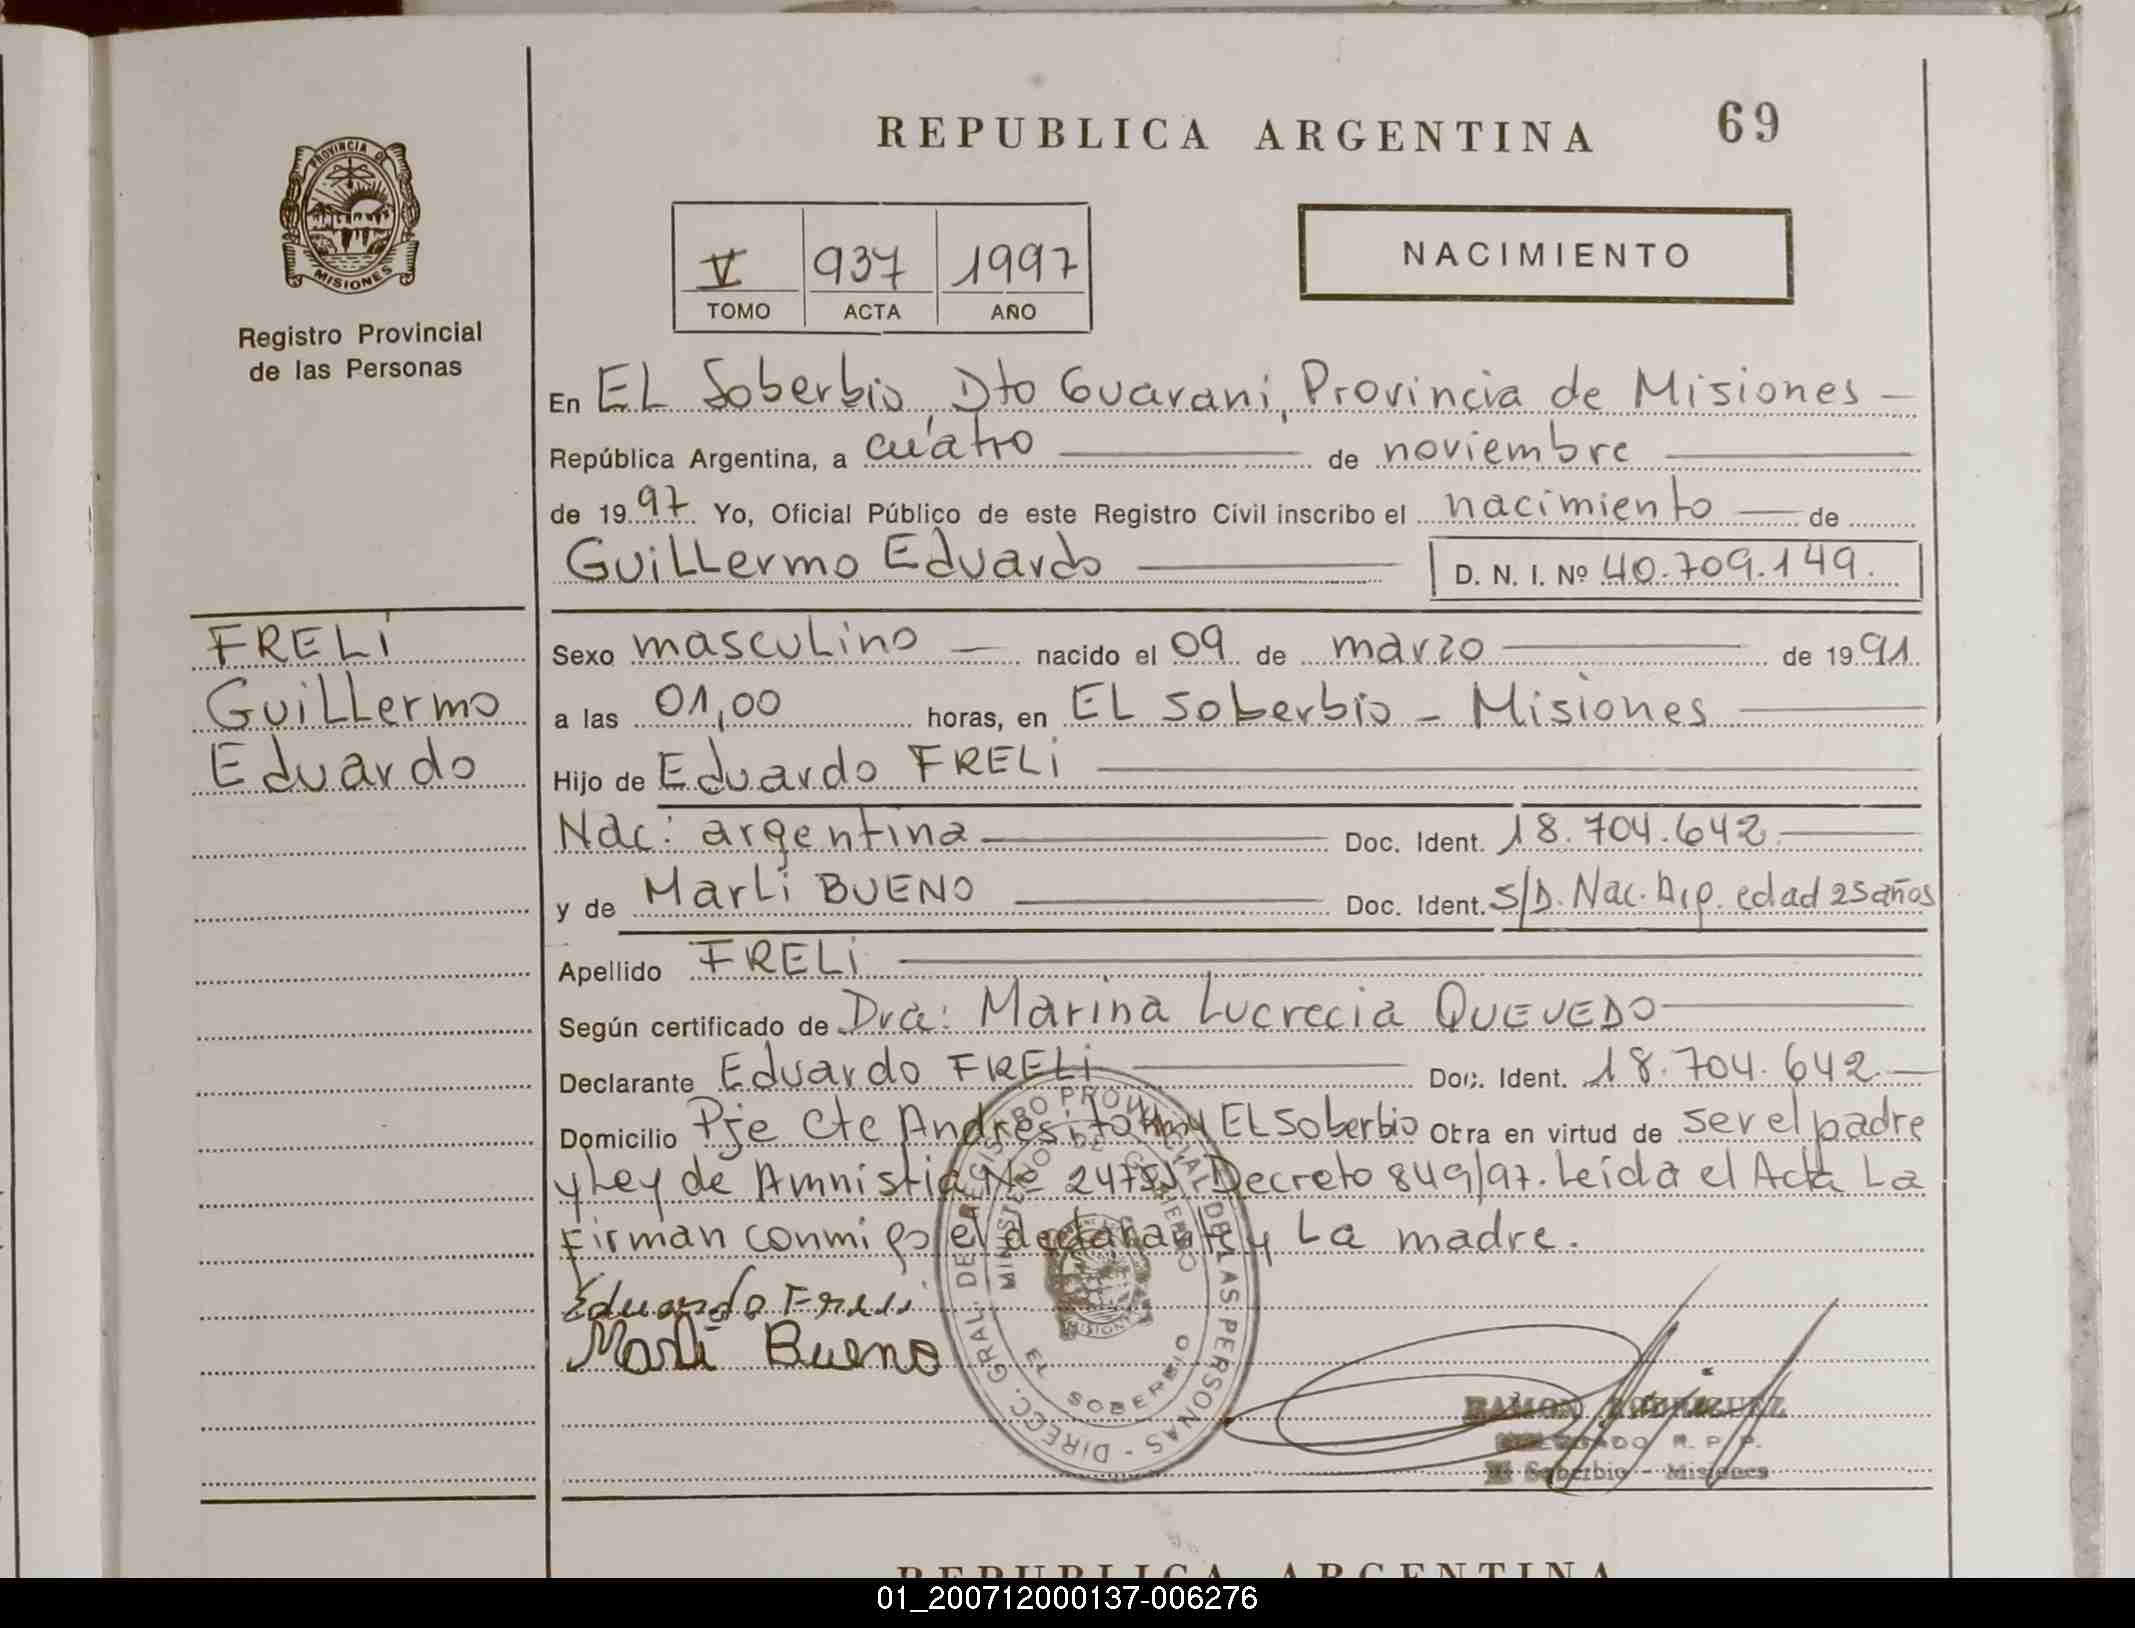 REPUBLICA ARGENTINA
69
PROVINCIA DE
MISIONES
Registro Provincial
de las Personas
V 937 1997
TOMO ACTA AÑO
NACIMIENTO
En EL Soberbio, Dto Guarani, Provincia de Misiones
República Argentina, a cuatro de noviembre
de 1997 Yo, Oficial Público de este Registro Civil inscribo el nacimiento de
Guillermo Eduardo D. N. I. Nº 40.709.149.
FRELI
Guillermo
Eduardo
Sexo masculino nacido el 09 de marzo de 1991
a las 01,00 horas, en EL Soberbio - Misiones
Hijo de Eduardo FRELI
Nac: argentina Doc. Ident. 18.704.642
y de Marli BUENO Doc. Ident. S/D. Nac. edad 25 años
Apellido FRELI
Según certificado de Dra: Marina Lucrecia QUEVEDO
Declarante Eduardo FRELI Doc. Ident. 18.704.642
Domicilio Pje Cte Andresito EL Soberbio Obra en virtud de ser el padre
y Ley de Amnistia Nº Decreto 849/97. Leída el Acta La
Firman conmigo el declarante y La madre.
Eduardo Freli
Marli Bueno
DIRECC. GRAL. DE REGISTRO PROVINCIAL DE LAS PERSONAS -
MINISTERIO DE GOBIERNO
MISIONES
EL SOBERBIO
RAMON RODRIGUEZ
DELEGADO R. P. P.
El Soberbio - Misiones
REPUBLICA ARGENTINA
01_200712000137-006276